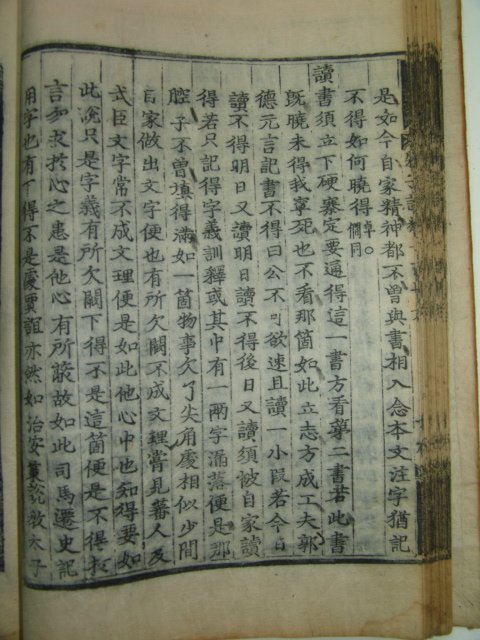 朱子語類
是如今自家精神都不曾與書相入念本文注字猶記
不得如何曉得卓。僩同
讀書須立下硬寨定要通得這一書方看第二書若此書
旣曉未得我寧死也不看那箇如此立志方成工夫郭
德元言記書不得曰公不可欲速且讀一小段若今日
讀不得明日又讀明日讀不得後日又讀須被自家讀
得若只記得字義訓釋或其中有一兩字漏落便是那
腔子不曾填得滿如一箇物事欠了尖角處相似少間
自家做出文字便也有所欠闕不成文理嘗見蕃人及
武臣文字常不成文理便是如此他心中也知得要如
此說只是字義有所欠闕下得不是這箇便是不得於
言勿求於心之患是他心有所蔽故如此司馬遷史記
用字也有下得不是處賈誼亦然如治安策說敎太子